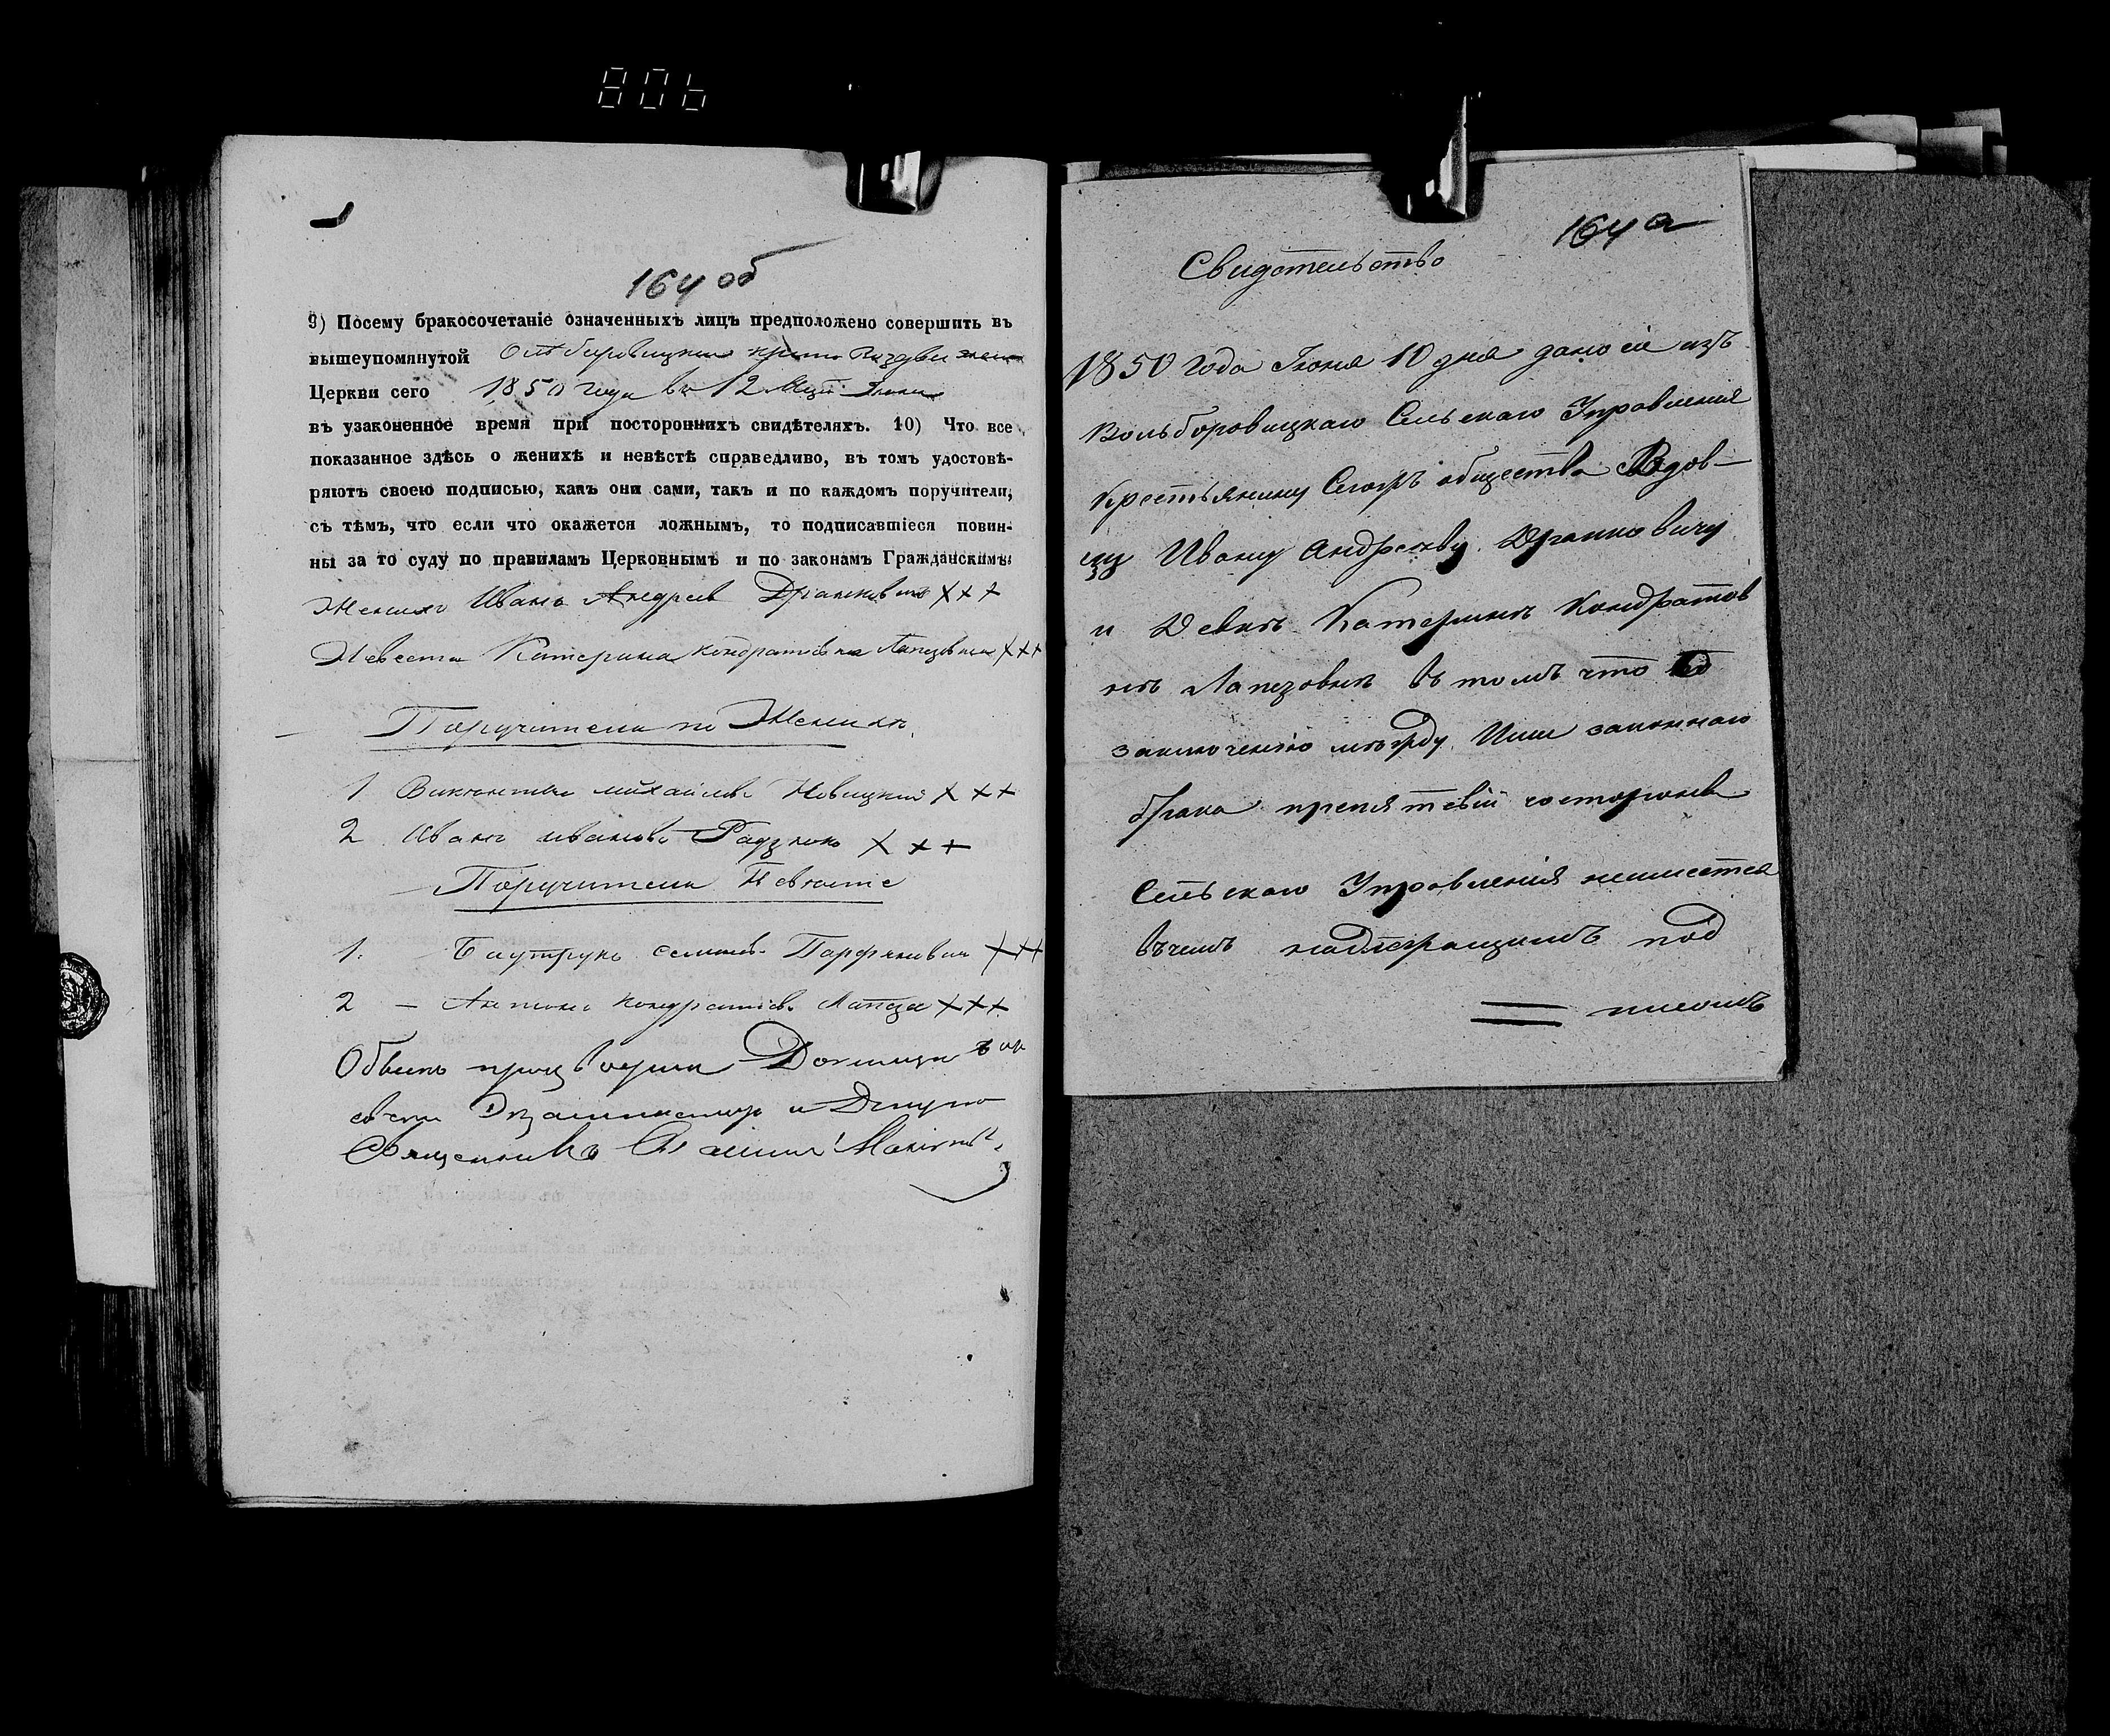 806
164 об
9) Посему бракосочетаніе означенныхъ лицъ предположено совершить въ
вышеупомянутой
Церкви сего 1850 года въ 12
въ узаконенное время при постороннихъ свидѣтеляхъ. 10) Что все
показанное здѣсь о женихѣ и невѣстѣ справедливо, въ томъ удостовѣ-
ряютъ своею подписью, какъ они сами, такъ и по каждомъ поручители,
съ тѣмъ, что если что окажется ложнымъ, то подписавшіеся повин-
ны за то суду по правиламъ Церковнымъ и по законамъ Гражданскимъ:
Женихъ Иванъ Андреев xxx
Невеста Катерина Кондратовна xxx
Поручители по Женихѣ
1 Викентій михайловъ Новицкий xxx
2 Иванъ ивановъ xxx
Поручители Невѣсте
1. xxx
2 – Антонъ Кондратовъ Лапеза xxx
Обыскъ
Священникъ
164 а
Свидетельство
1850 года Іюня 10 дня дано сіе изъ
Вольборовицкаго Сельскаго Управленія
Крестьянину Сегожъ общества Вдов–
цу Ивану Андрееву Дранковичу
и Девкѣ Катеринѣ Кондратов
нѣ Лапезовнѣ въ томъ что къ
заключенію между Ими законнаго
брака препятствій состороны
Сельскаго Управленія неимеется
въчемъ надлежащимъ под
писомъ